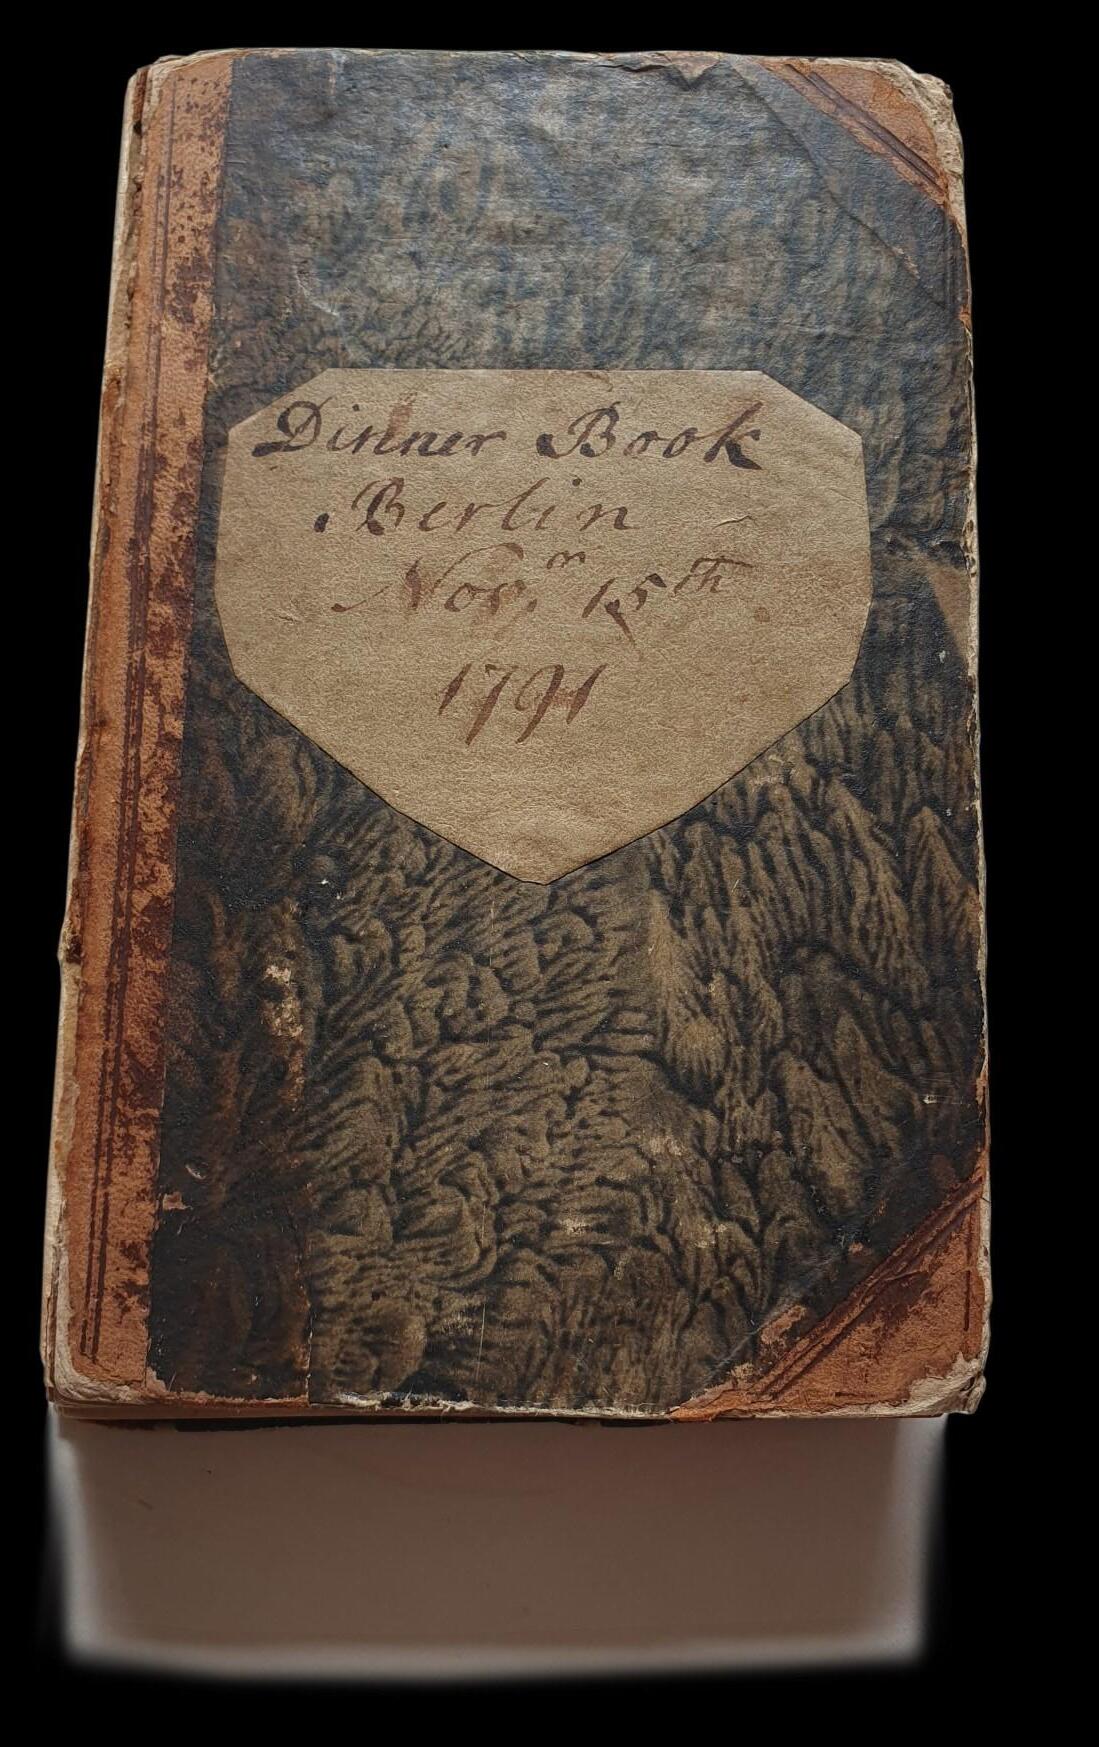 Dinner Book
Berlin
Nov.^m 15^th
1791